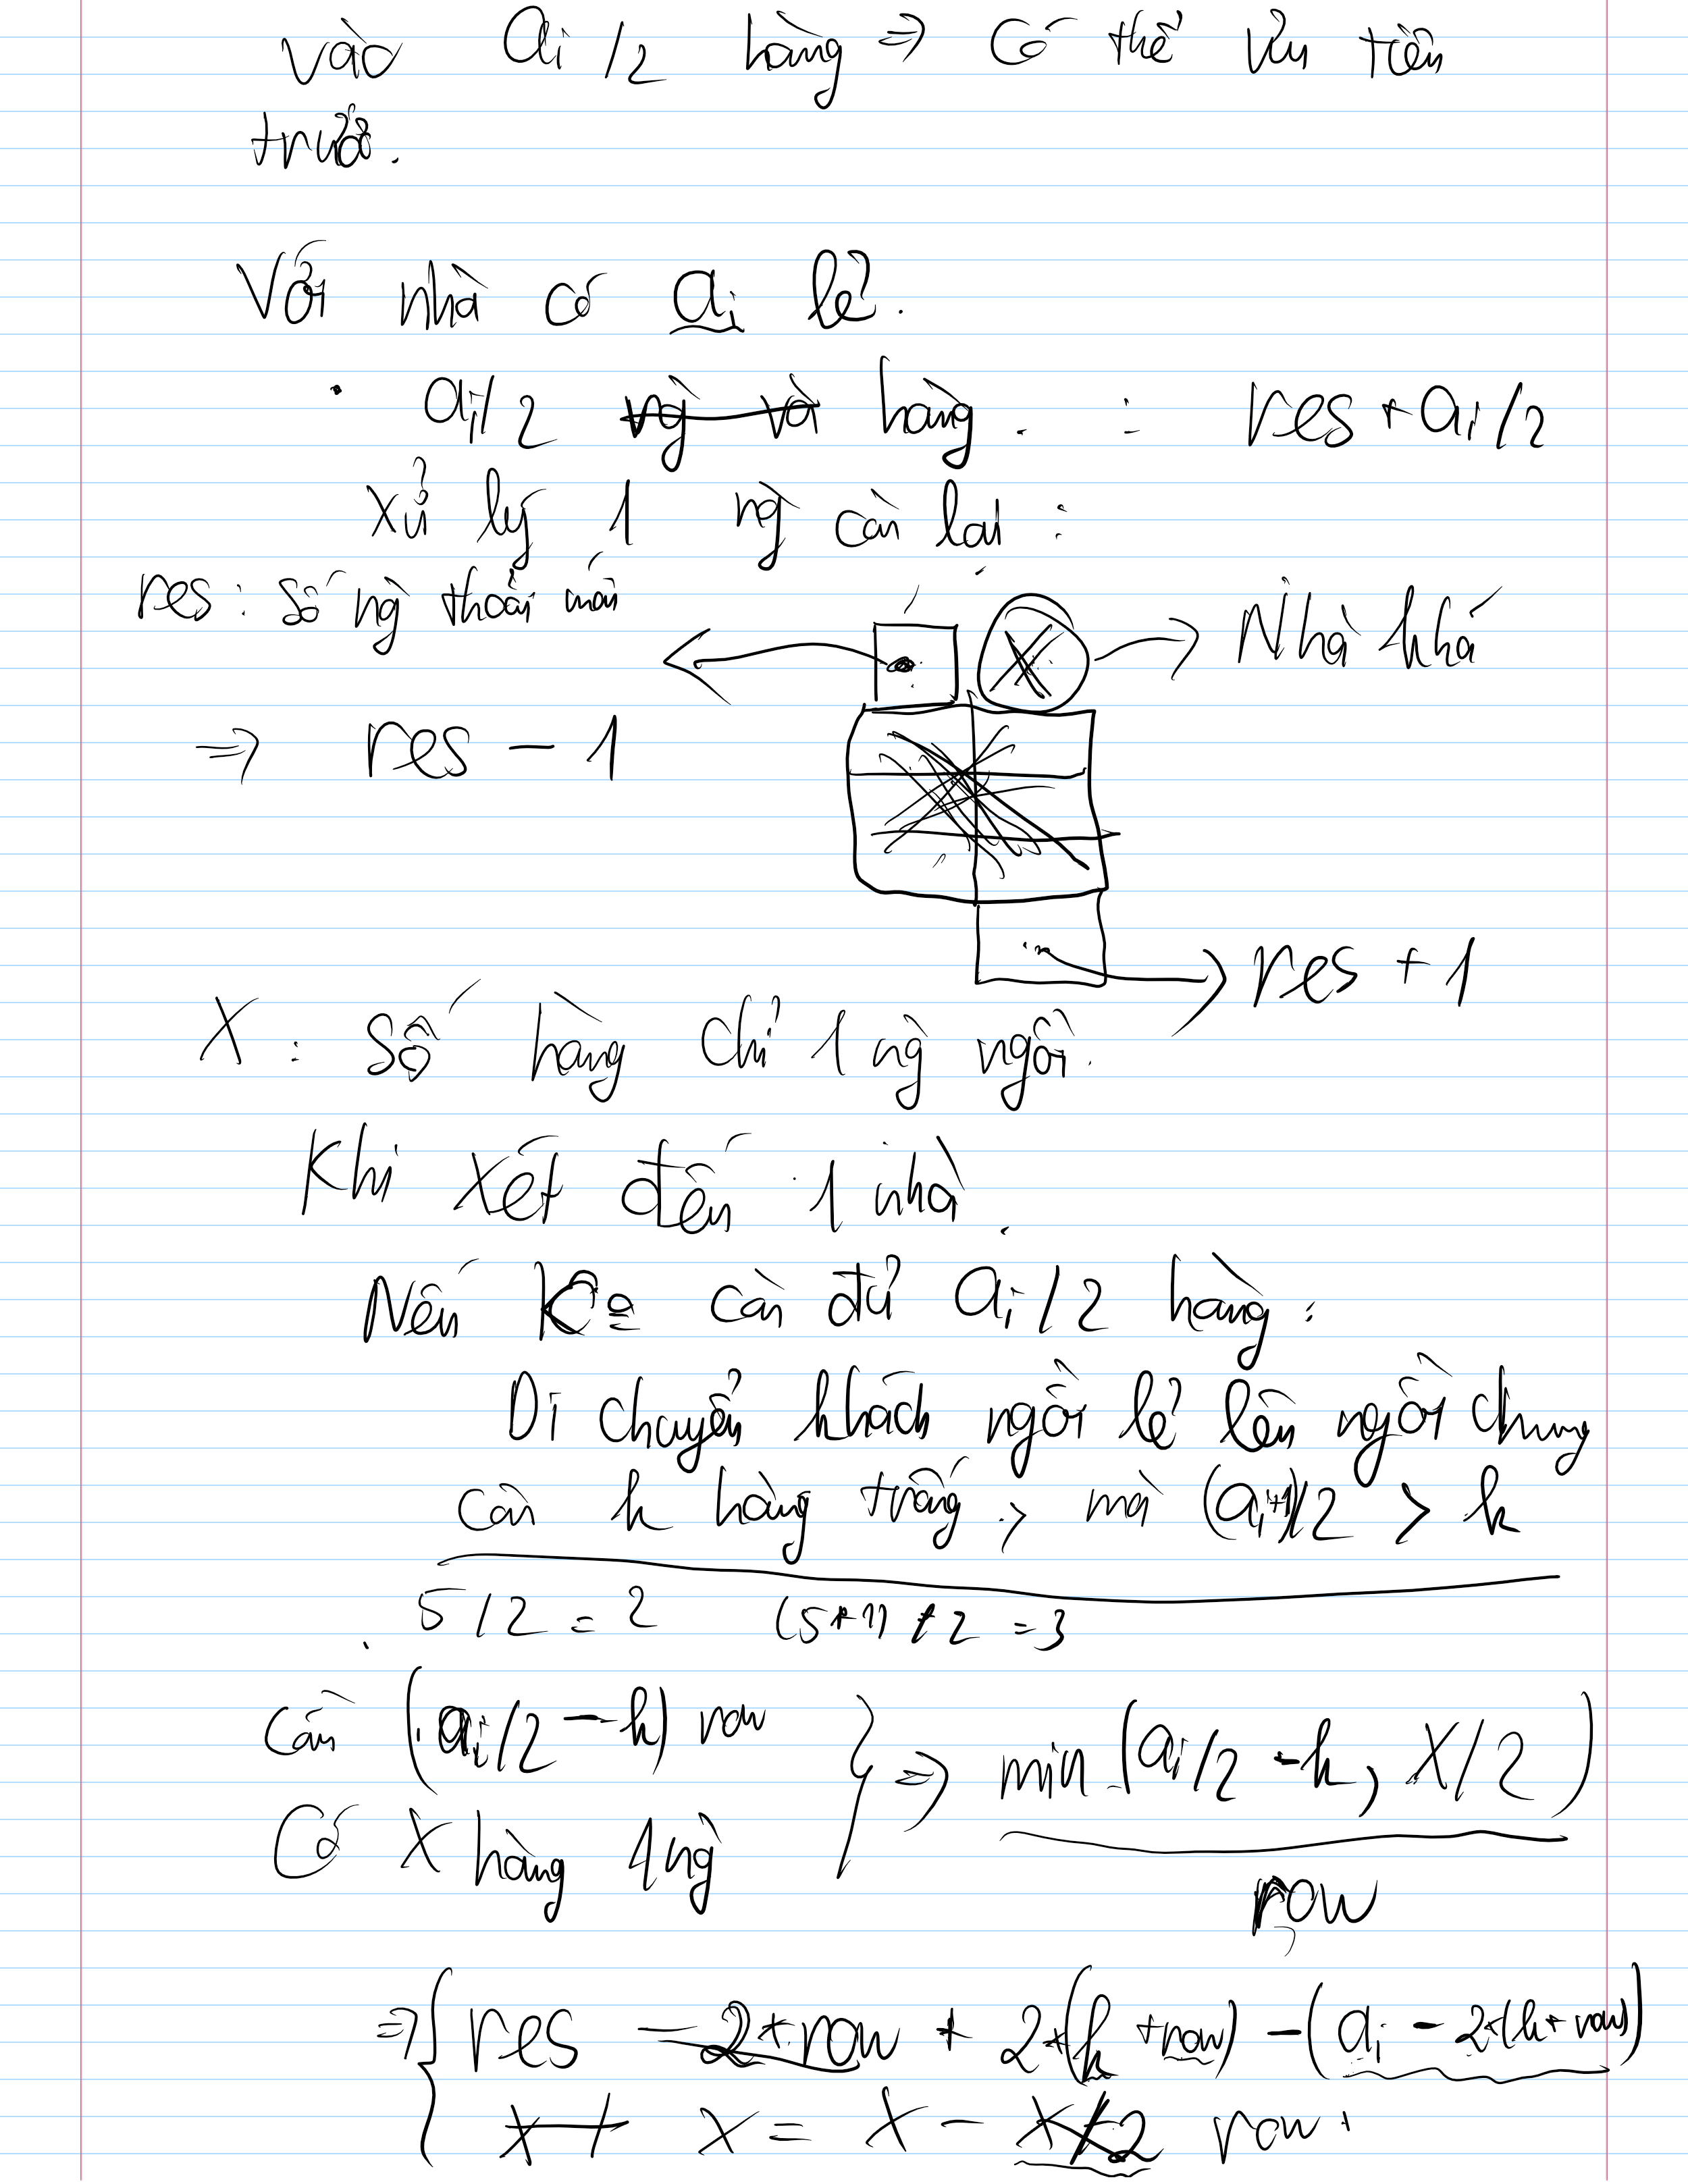 vào ai/2 hàng => Có thể ưu tiên
trước.
Với nhà có ai lẻ.
• ai/2 hàng. : res + ai/2
xử lý 1 ng còn lại :
res : số ng thoải mái
Nhà khá
=> res - 1
res + 1
X : Số hàng chỉ 1 ng ngồi.
Khi xét đến 1 nhà.
Nếu còn đủ ai/2 hàng :
Di chuyển khách ngồi lẻ lên ngồi chung
còn k hàng trống, mà (ai+1)/2 > k
5/2 = 2 (5+1)/2 = 3
Cần (ai/2 - k) row
Có X hàng 1 ng
=> min (ai/2 - k, X/2)
row
=> { res - 2*row + 2*(k + row) - (ai - 2*(k + row))
X = X - row